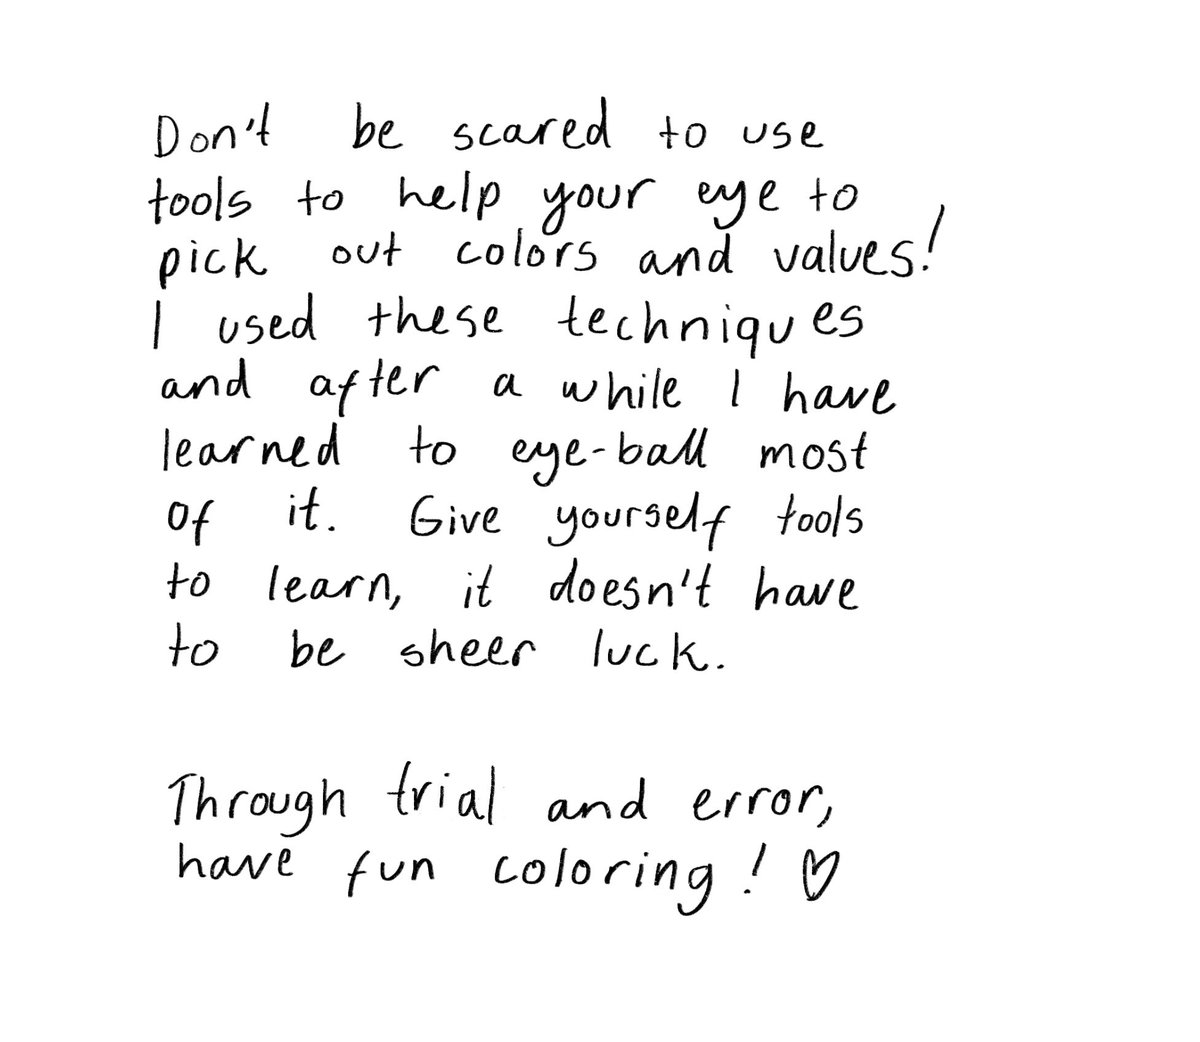 Don't be scared to use
tools to help your eye to
pick out colors and values!
I used these techniques
and after a while I have
learned to eye-ball most
of it. Give yourself tools
to learn, it doesn't have
to be sheer luck.
Through trial and error,
have fun coloring! ♡